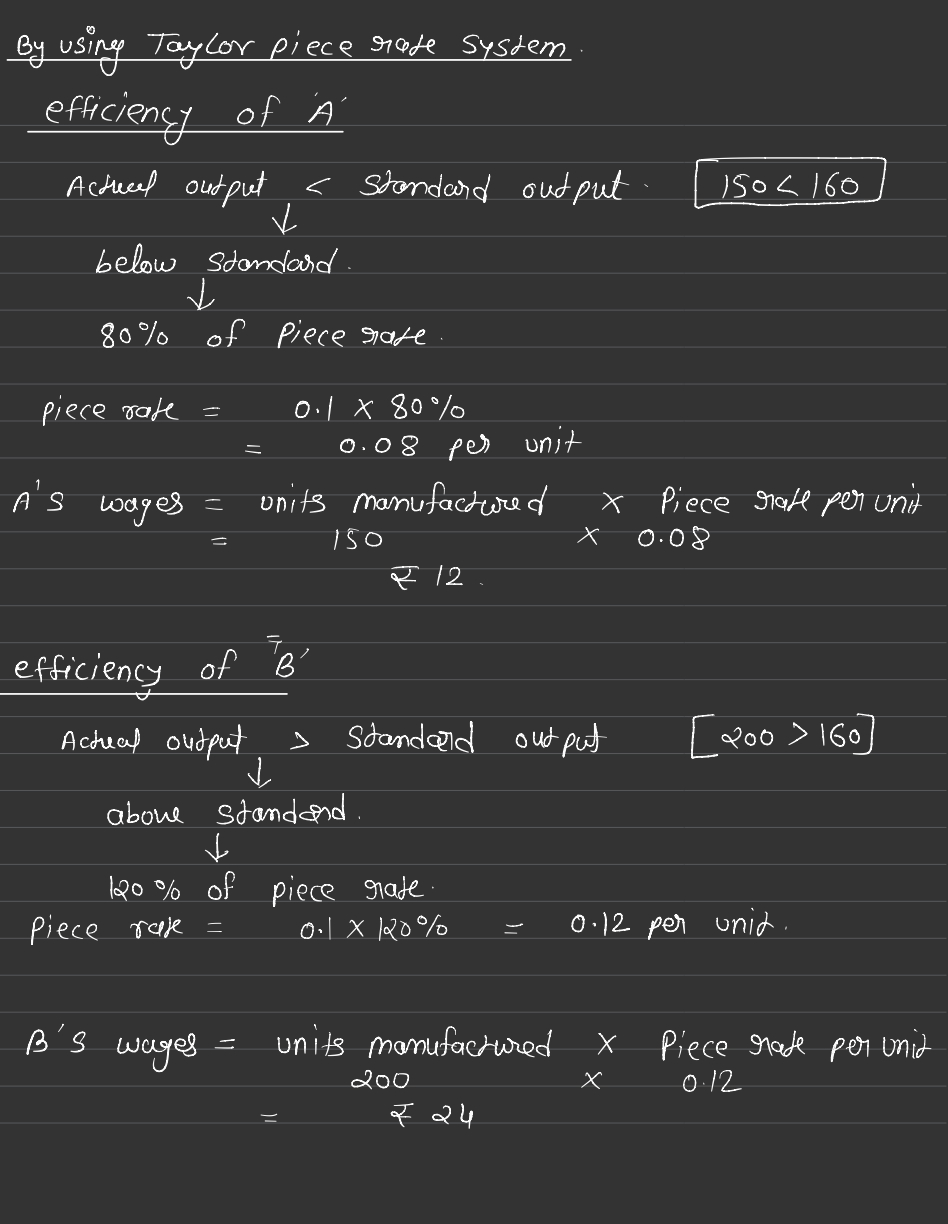 By using Taylor piece rate system.
efficiency of 'A'
Actual output < Standard output. 150 < 160
↓
below standard.
↓
80% of Piece rate.
piece rate = 0.1 x 80%
= 0.08 per unit
A's wages = units manufactured x Piece rate per unit
= 150 x 0.08
₹ 12.
efficiency of 'B'
Actual output > Standard output [200 > 160]
↓
above standard.
↓
120% of piece rate.
Piece rate = 0.1 x 120% = 0.12 per unit.
B's wages = units manufactured x Piece rate per unit
200 x 0.12
= ₹ 24